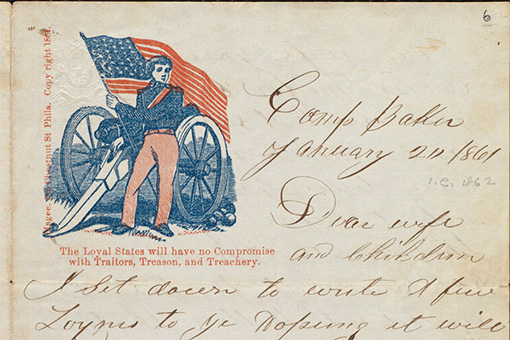 6
Magee, 316 Chestnut St Phila. Copy right 1861.
Camp Baker
January 20 1861
i.e. 1862
Dear wife
and Children
The Loyal States will have no Compromise
with Traitors, Treason, and Treachery.
I set down to write A few
to ye hopeing it will